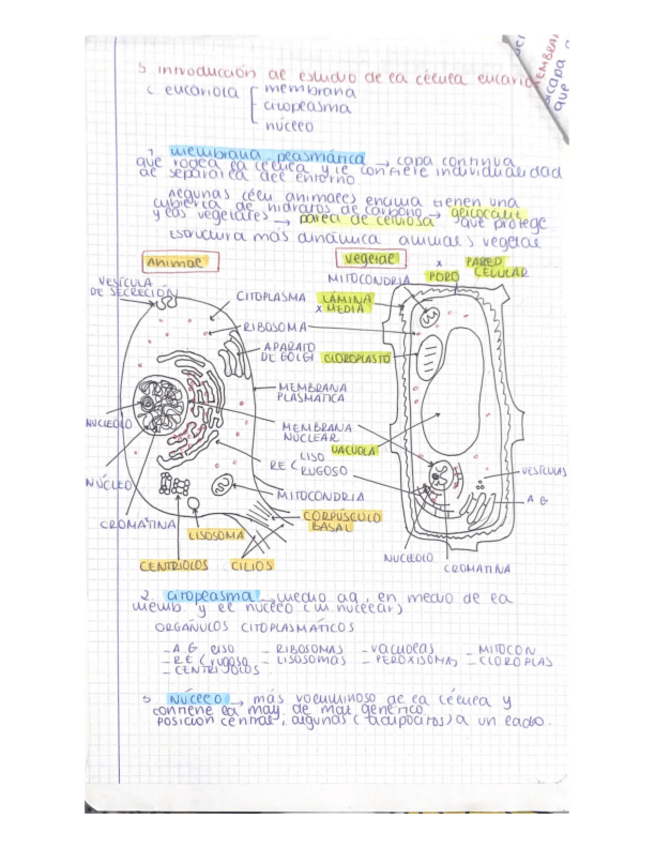 5 introducción al estudio de la célula eucario
c eucariota [ membrana
citoplasma
núcleo
1. membrana plasmática → capa continua
que rodea la célula y le confiere individualidad
al separarla del entorno
Algunas célu animales encima tienen una
cubierta de hidratos de carbono → glicocalit
y las vegetales → pared de celulosa que protege
Estructura más dinámica animal > vegetal
Animal
vegetal
x PARED CELULAR
PORO
MITOCONDRIA
VESÍCULA
DE SECRECIÓN
CITOPLASMA
LÁMINA
x MEDIA
RIBOSOMA
APARATO
DE GOLGI
CLOROPLASTO
MEMBRANA
PLASMATICA
NUCLEOLO
MEMBRANA
NUCLEAR
VACUOLA
RE < LISO
RUGOSO
VESÍCULAS
NÚCLEO
MITOCONDRIA
A G
CROMATINA
LISOSOMA
CORPÚSCULO
BASAL
CENTRIOLOS
CILIOS
NUCLEOLO
CROMATINA
2. citoplasma → medio aq, en medio de la
memb y el núcleo (m nuclear)
ORGÁNULOS CITOPLASMÁTICOS
- A G liso - RIBOSOMAS - vacuolas - MITOCON
- RE < rugoso - LISOSOMAS - PEROXISOMAS - CLOROPLAS
- CENTRIOLOS
3 Núcleo → más voluminoso de la célula y
contiene la may de mat genético
posición central, algunas (adipocitos) a un lado.
EMBRA
capa
que